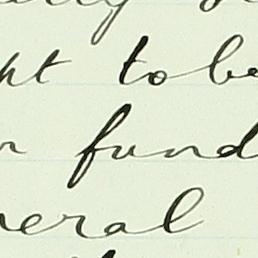 ht to be
n fund
neral